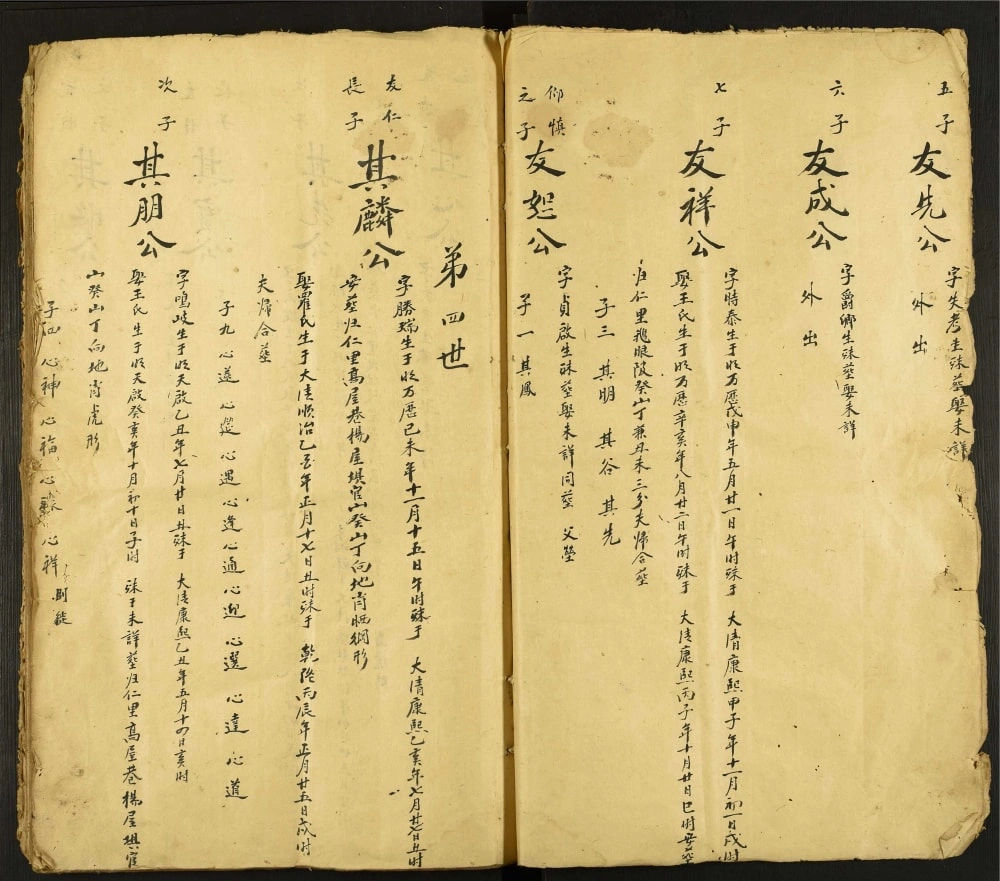 五子
友先公
字失考生殁塟娶未詳
外出
六子
友成公
字爵卿生殁塟娶未詳
外出
七子
友祥公
字時泰生于明万曆戊申年五月廿一日午时殁于 大清康熙甲子年十一月初一日戌时
娶王氏生于明万曆辛亥年八月廿二日午时殁于 大清康熙丙子年十月廿日巳时安塟
归仁里 癸山丁兼丑未三分夫帰合塟
子三 其明 其谷 其先
仰慎
之子
友恕公
字貞啟生殁塟娶未詳同塟 父塋
子一 其鳳
第四世
友仁
長子
其麟公
字勝瑞生于明万曆己未年十一月十五日午时殁于 大清康熙乙亥年七月廿七日丑时
安塟归仁里高屋巷楊屋垻官山癸山丁向地肖晒網形
娶羅氏生于大清順治乙 年正月十七日丑时殁于 乾隆丙辰年正月廿五日戌时
夫帰合塟
子九 心遂 心 心遇 心逢 心通 心迎 心選 心達 心道
次子
其朋公
字鳴岐生于明天啟乙丑年七月廿日丑殁于 大清康熙乙丑年五月十四日亥时
娶王氏生于明天啟癸亥年十月初十日子时 殁于未詳塟归仁里高屋巷楊屋垻官
山癸山丁向地肖虎形
子四 心神 心福 心 心祥